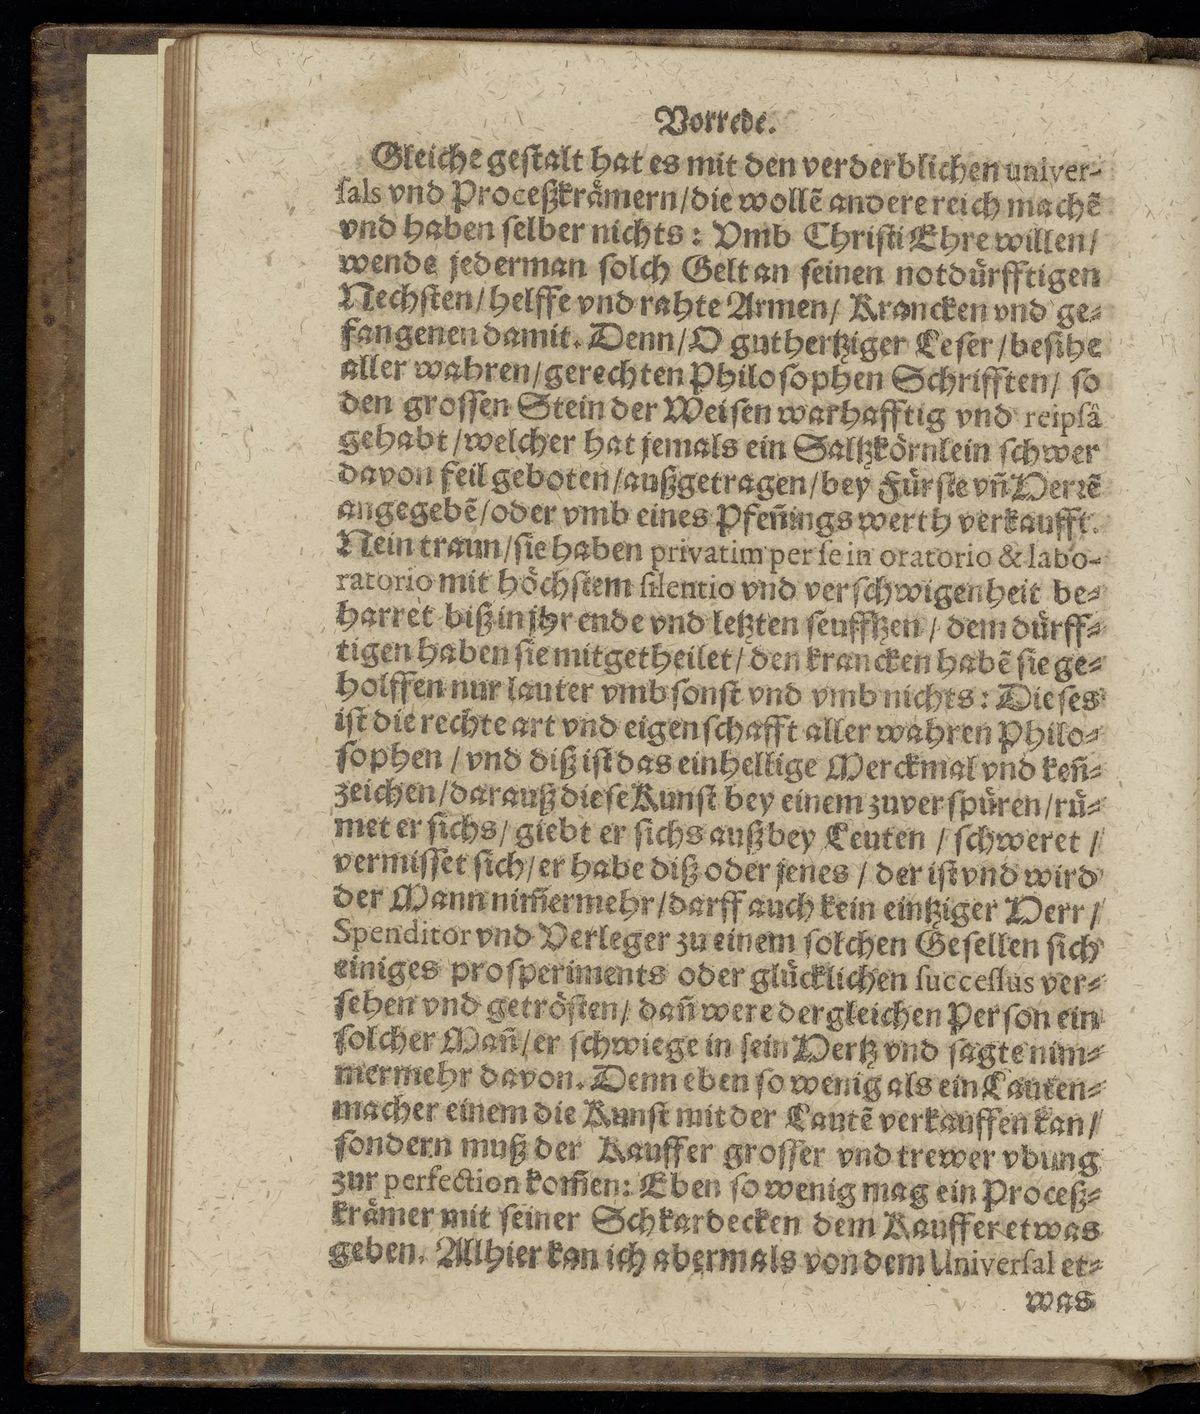 Vorrede.
Gleiche gestalt hat es mit den verderblichen univer-
sals vnd Proceßkrämern/die wollẽ andere reich machẽ
vnd haben selber nichts: Vmb Christi Ehre willen/
wende jederman solch Gelt an seinen notdürfftigen
Nechsten/helffe vnd rahte Armen/ Krancken vnd ge-
fangenen damit. Denn/O guthertziger Leser/besihe
aller wahren/gerechten Philosophen Schrifften/ so
den grossen Stein der Weisen warhafftig vnd reipsâ
gehabt/welcher hat jemals ein Saltzkörnlein schwer
davon feil geboten/außgetragen/bey Fürstẽ vñ Herrẽ
angegebẽ/oder vmb eines Pfeñings werth verkaufft.
Nein traun/sie haben privatim per se in oratorio & labo-
ratorio mit höchstem silentio vnd verschwigenheit be-
harret biß in jhr ende vnd letzten seufftzen/ dem dürff-
tigen haben sie mitgetheilet/ den krancken habẽ sie ge-
holffen nur lauter vmbsonst vnd vmb nichts: Dieses
ist die rechte art vnd eigenschafft aller wahren Philo-
sophen / vnd diß ist das einhellige Merckmal vnd keñ-
zeichen/darauß diese Kunst bey einem zuverspüren/rü-
met er sichs/ giebt er sichs auß bey Leuten / schweret /
vermisset sich/er habe diß oder jenes / der ist vnd wird
der Mann nim̃ermehr/darff auch kein eintziger Herr/
Spenditor vnd Verleger zu einem solchen Gesellen sich
einiges prosperiments oder glücklichen successus ver-
sehen vnd getrösten/ dañ were dergleichen Person ein
solcher Mañ/er schwiege in sein Hertz vnd sagte nim-
mermehr davon. Denn eben so wenig als ein Lauten-
macher einem die Kunst mit der Lautẽ verkauffen kan/
sondern muß der Kauffer grosser vnd trewer vbung
zur perfection kom̃en: Eben so wenig mag ein Proceß-
krämer mit seiner Schkardecken dem Kauffer etwas
geben. Allhier kan ich abermals von dem Universal et-
was